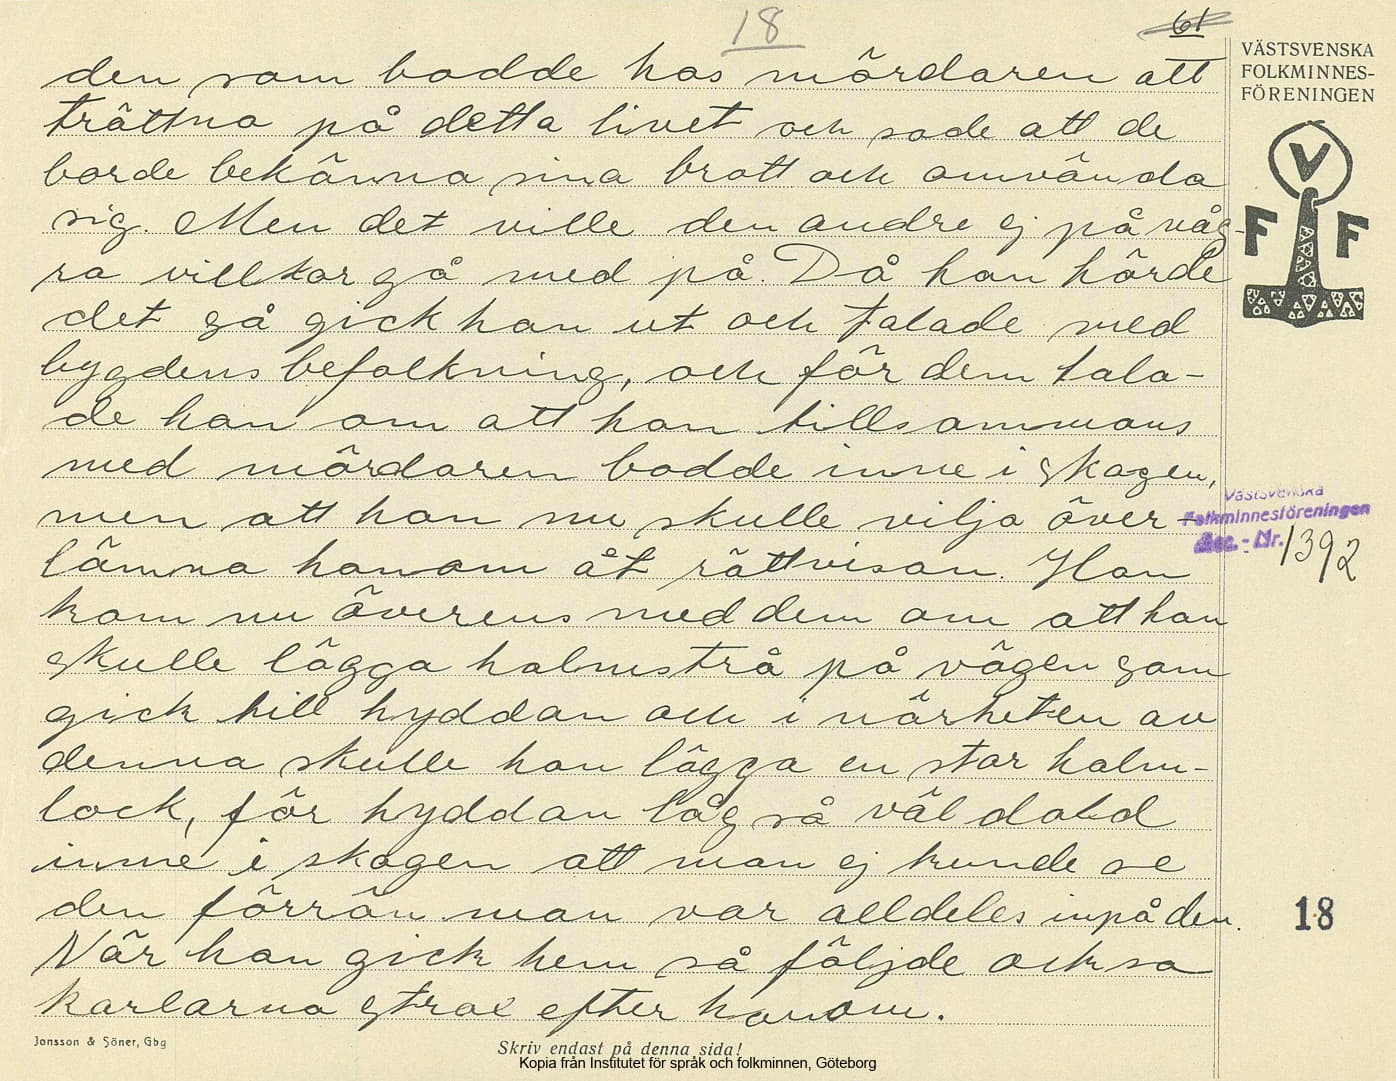 18
61
den som bodde hos mördaren att
tråttna på detta livet och sade att de
borde bekänna sina brott och omvända
sig. Men det ville den andre ej på våg-
ra villkor gå med på. Då han hörde
det så gick han ut och talade med
bygdens befolkning, och för dem tala-
de han om att han tillsammans
med mördaren bodde inne i skogen,
men att han nu skulle vilja över-
lämna honom åt rättvisan. Han
kom nu överens med dem om att han
skulle lägga halmstrå på vägen som
gick till hyddan och i närheten av
denna skulle han lägga en stor halm-
lock, för hyddan låg så väl dold
inne i skogen att man ej kunde se
den förrän man var alldeles inpå den.
När han gick hem så följde också
karlarna strax efter honom.
VÄSTSVENSKA
FOLKMINNES-
FÖRENINGEN
V
F F
Västsvenska
Folkminnesföreningen
Acc. - Nr. 1392
18
Jonsson & Söner, Gbg
Skriv endast på denna sida!
Kopia från Institutet för språk och folkminnen, Göteborg